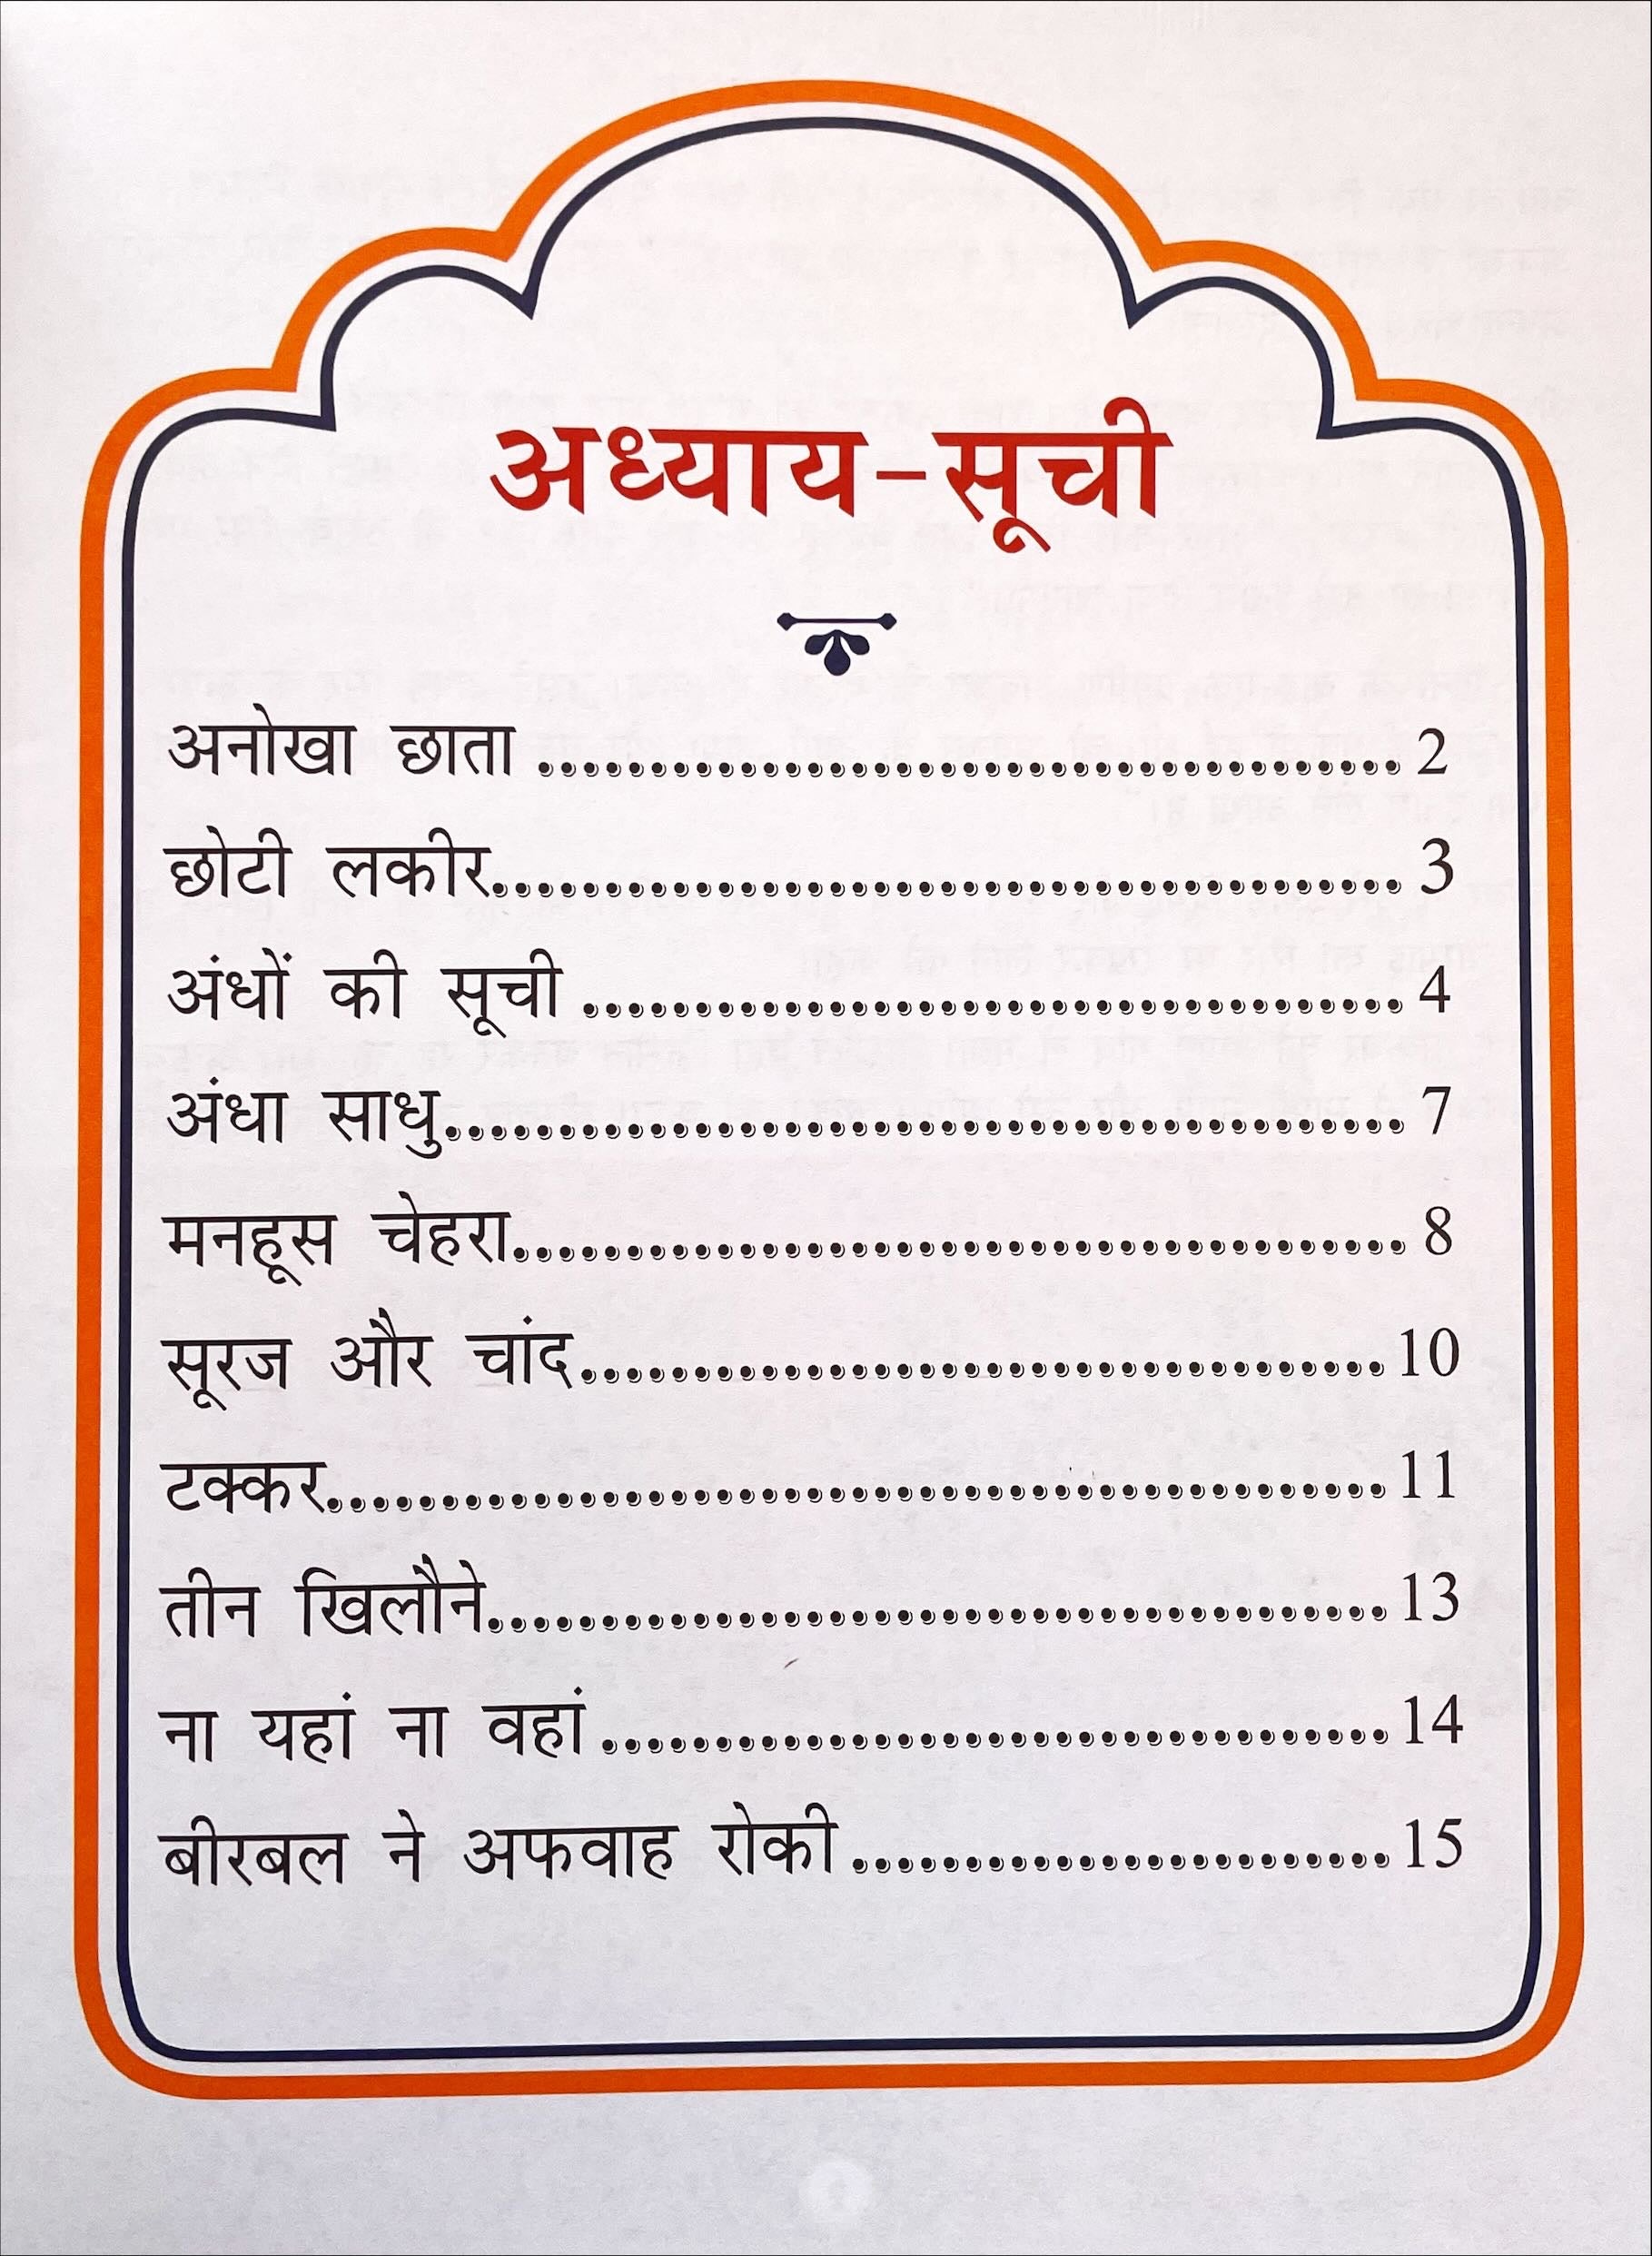 अध्याय-सूची
अनोखा छाता ...................................... 2
छोटी लकीर........................................ 3
अंधों की सूची .................................... 4
अंधा साधु.......................................... 7
मनहूस चेहरा....................................... 8
सूरज और चांद.................................... 10
टक्कर............................................... 11
तीन खिलौने........................................ 13
ना यहां ना वहां ................................... 14
बीरबल ने अफवाह रोकी ........................ 15